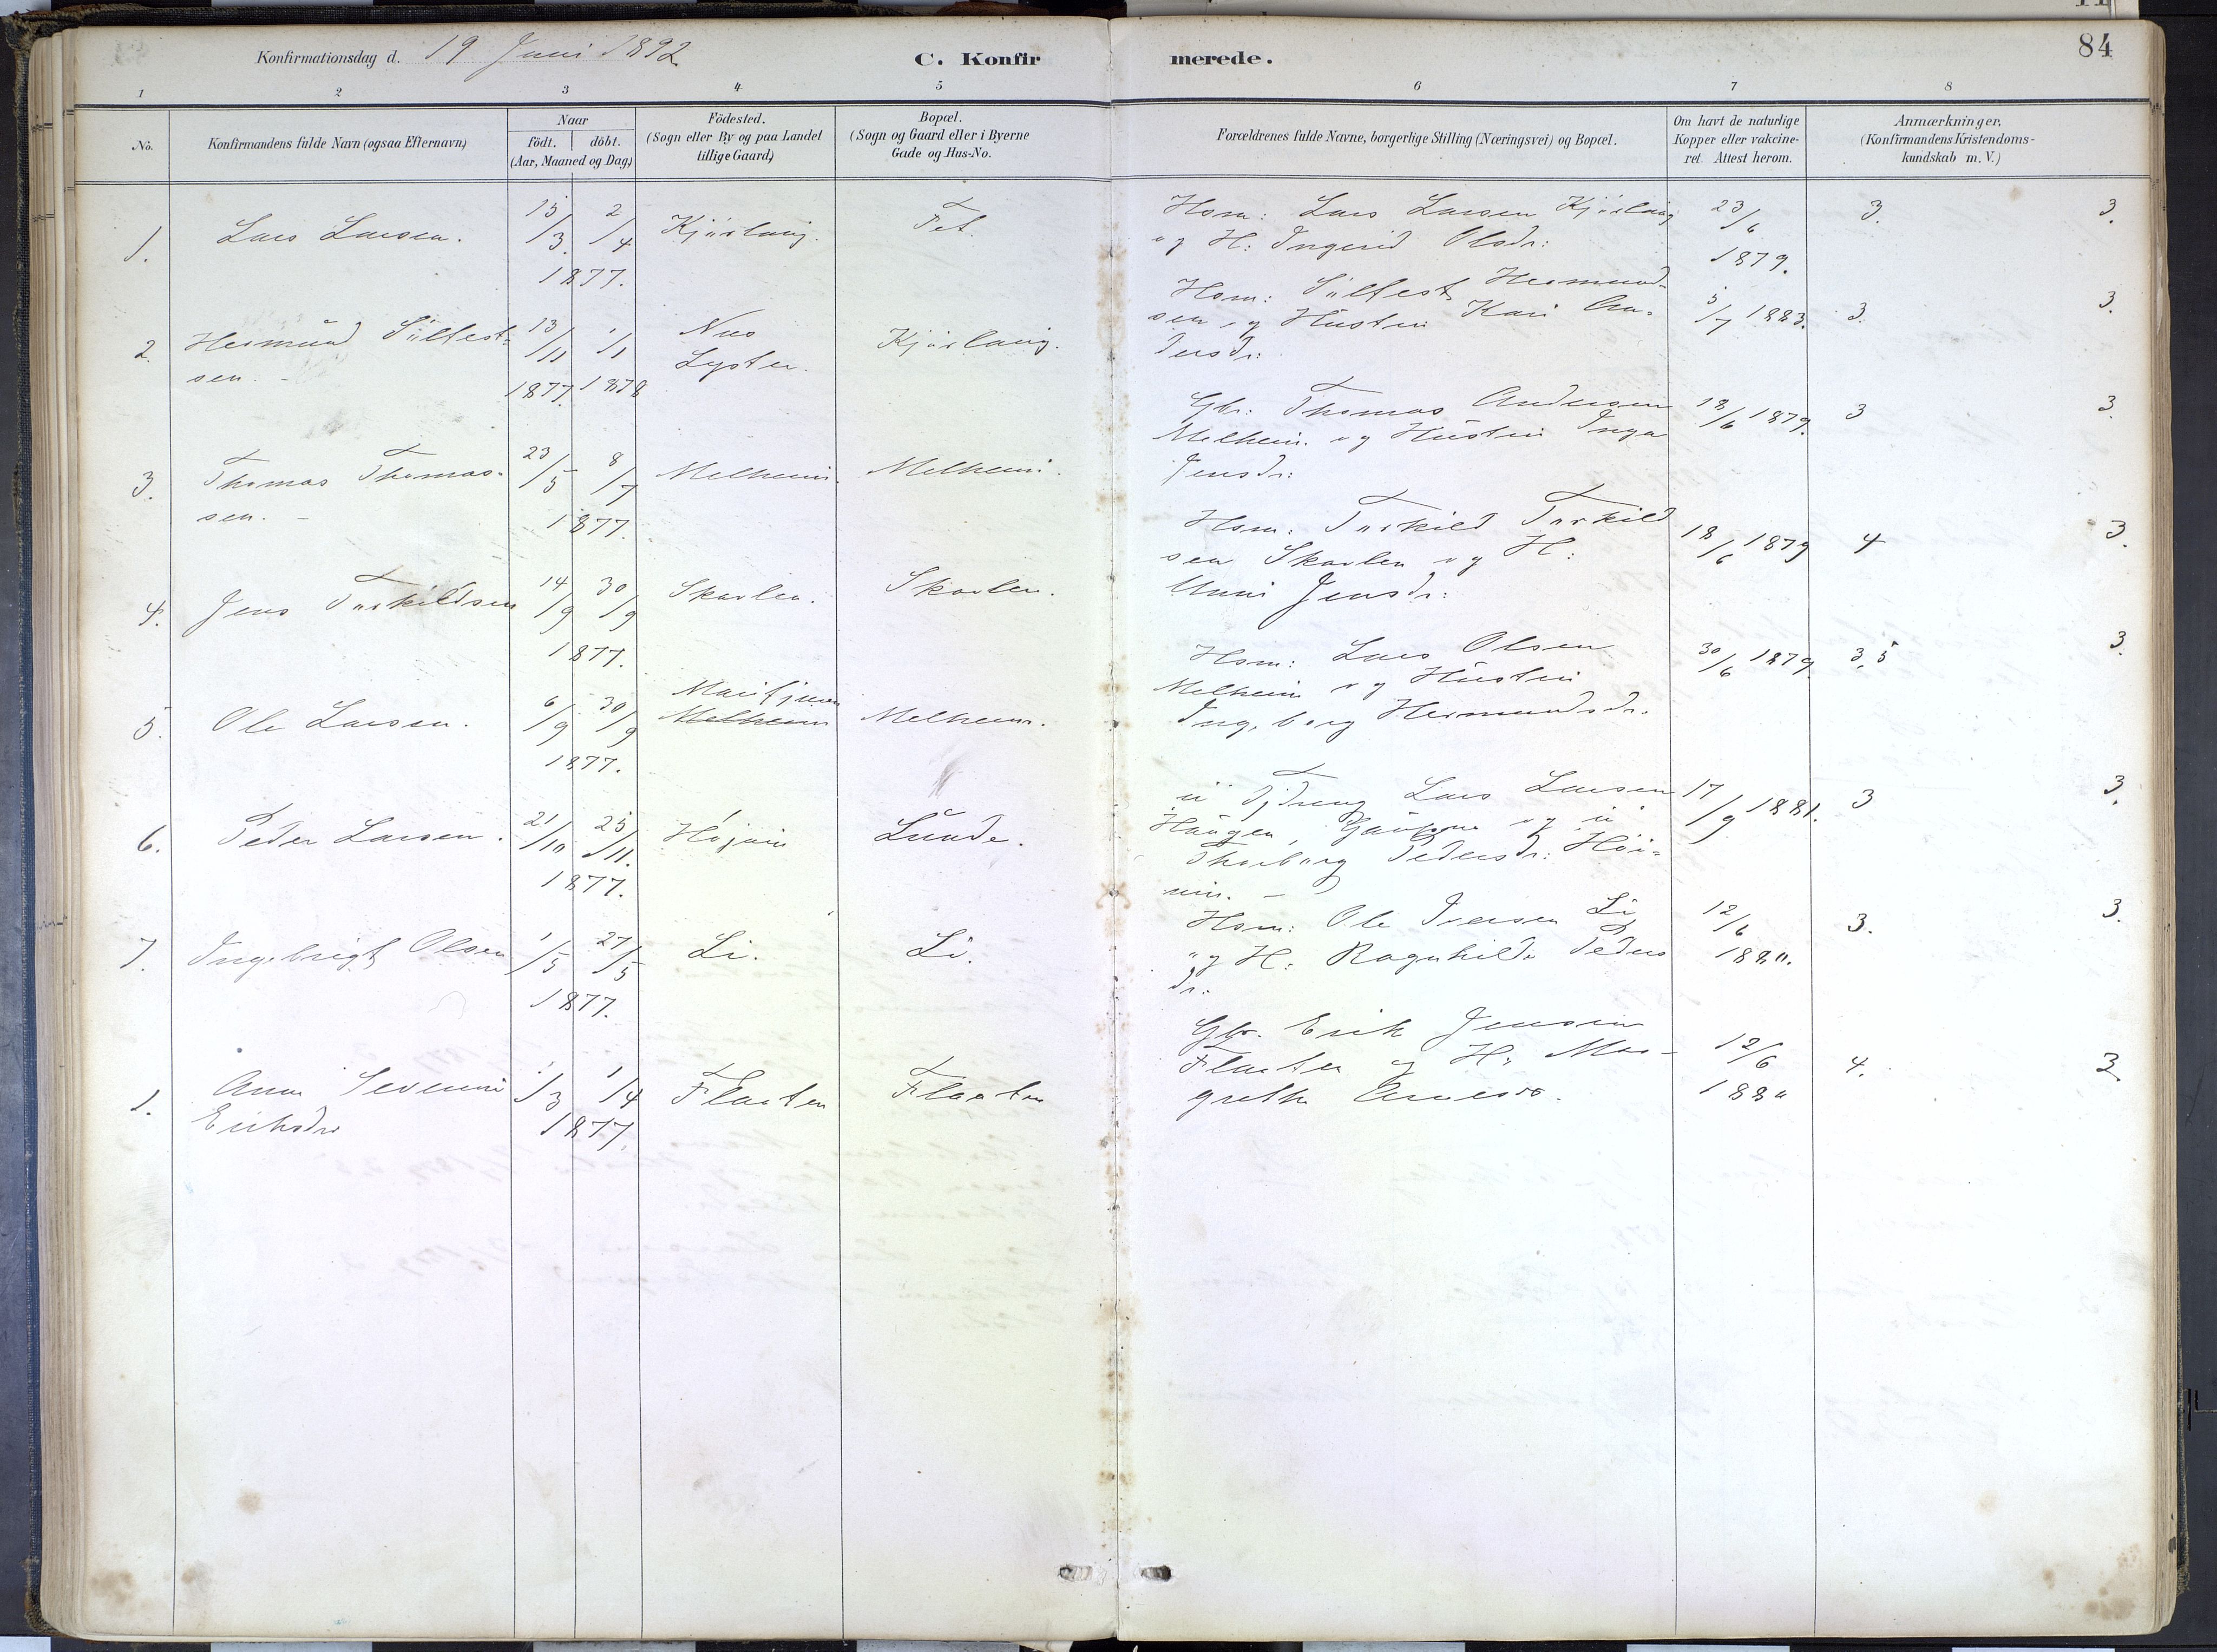 84
Konfirmationsdag d. 19 Juni 1892
C. Konfirmerede.
1 2 3 4 5 6 7 8
No. Konfirmandens fulde Navn (ogsaa Efternavn) Naar födt. döbt. (Aar, Maaned og Dag.) Födested. (Sogn eller By og paa Landet tillige Gaard,) Bopæl. (Sogn og Gaard eller i Byerne Gade og Hus-No. Forældrenes fulde Navne, borgerlige Stilling (Næringsvei) og Bopæl. Om havt de naturlige Kopper eller vakcineret. Attest herom. Anmærkninger. (Konfirmandens Kristendomskundskab m. V.)
1. Lars Larsen. 15/3 2/4 1877. Fet. 23/6 1879. 3. 3.
Hsm: Lars Larsen
og H: Ingerid Olsdr:
2. Hermund Sjultest-
sen. 13/11 1877. 1/1 1878 Nes Lyster. 5/7 1883. 3. 3.
Hsm: Hermund-
sen og Hustru Kari An-
dersdr:
3. Thomas Thomas-
sen. 23/5 8/7 1877. Melheim. Melheim. 18/6 1879. 3 3.
Gbr: Thomas Andersen
Melheim og Hustru Inga
Jensdr:
4. Jens Torkildsen 14/9 30/9 1877. 18/6 1879 4 3.
Hsm: Torkild Torkild
sen og H:
Unni Jensdr:
5. Ole Larsen. 6/9 30/9 1877. Marifjæren Melheim Melheim. 30/6 1879. 3,5 3.
Hsm: Lars Olsen
Melheim og Hustru
Ingeborg Hermundsdr.
6. Peder Larsen. 21/10 25/11. 1877. Lunde. 17/9 1881. 3 3.
Lars Larsen
Haugen, Gaupne og
Pedersdr: Höi-
7. Ingebrigt Olsen 1/5 27/5 1877. Li. Li. 12/6 1880. 3. 3.
Hsm: Ole Iversen Li
og H: Ragnhilde Peders
dr:
1. Anna Severine
Eriksdr 1/3 1/4 1877. Flaaten Flaaten 12/6 1880 4. 3.
Gbr. Erik Jensen
Flaaten og H: Mar-
grethe